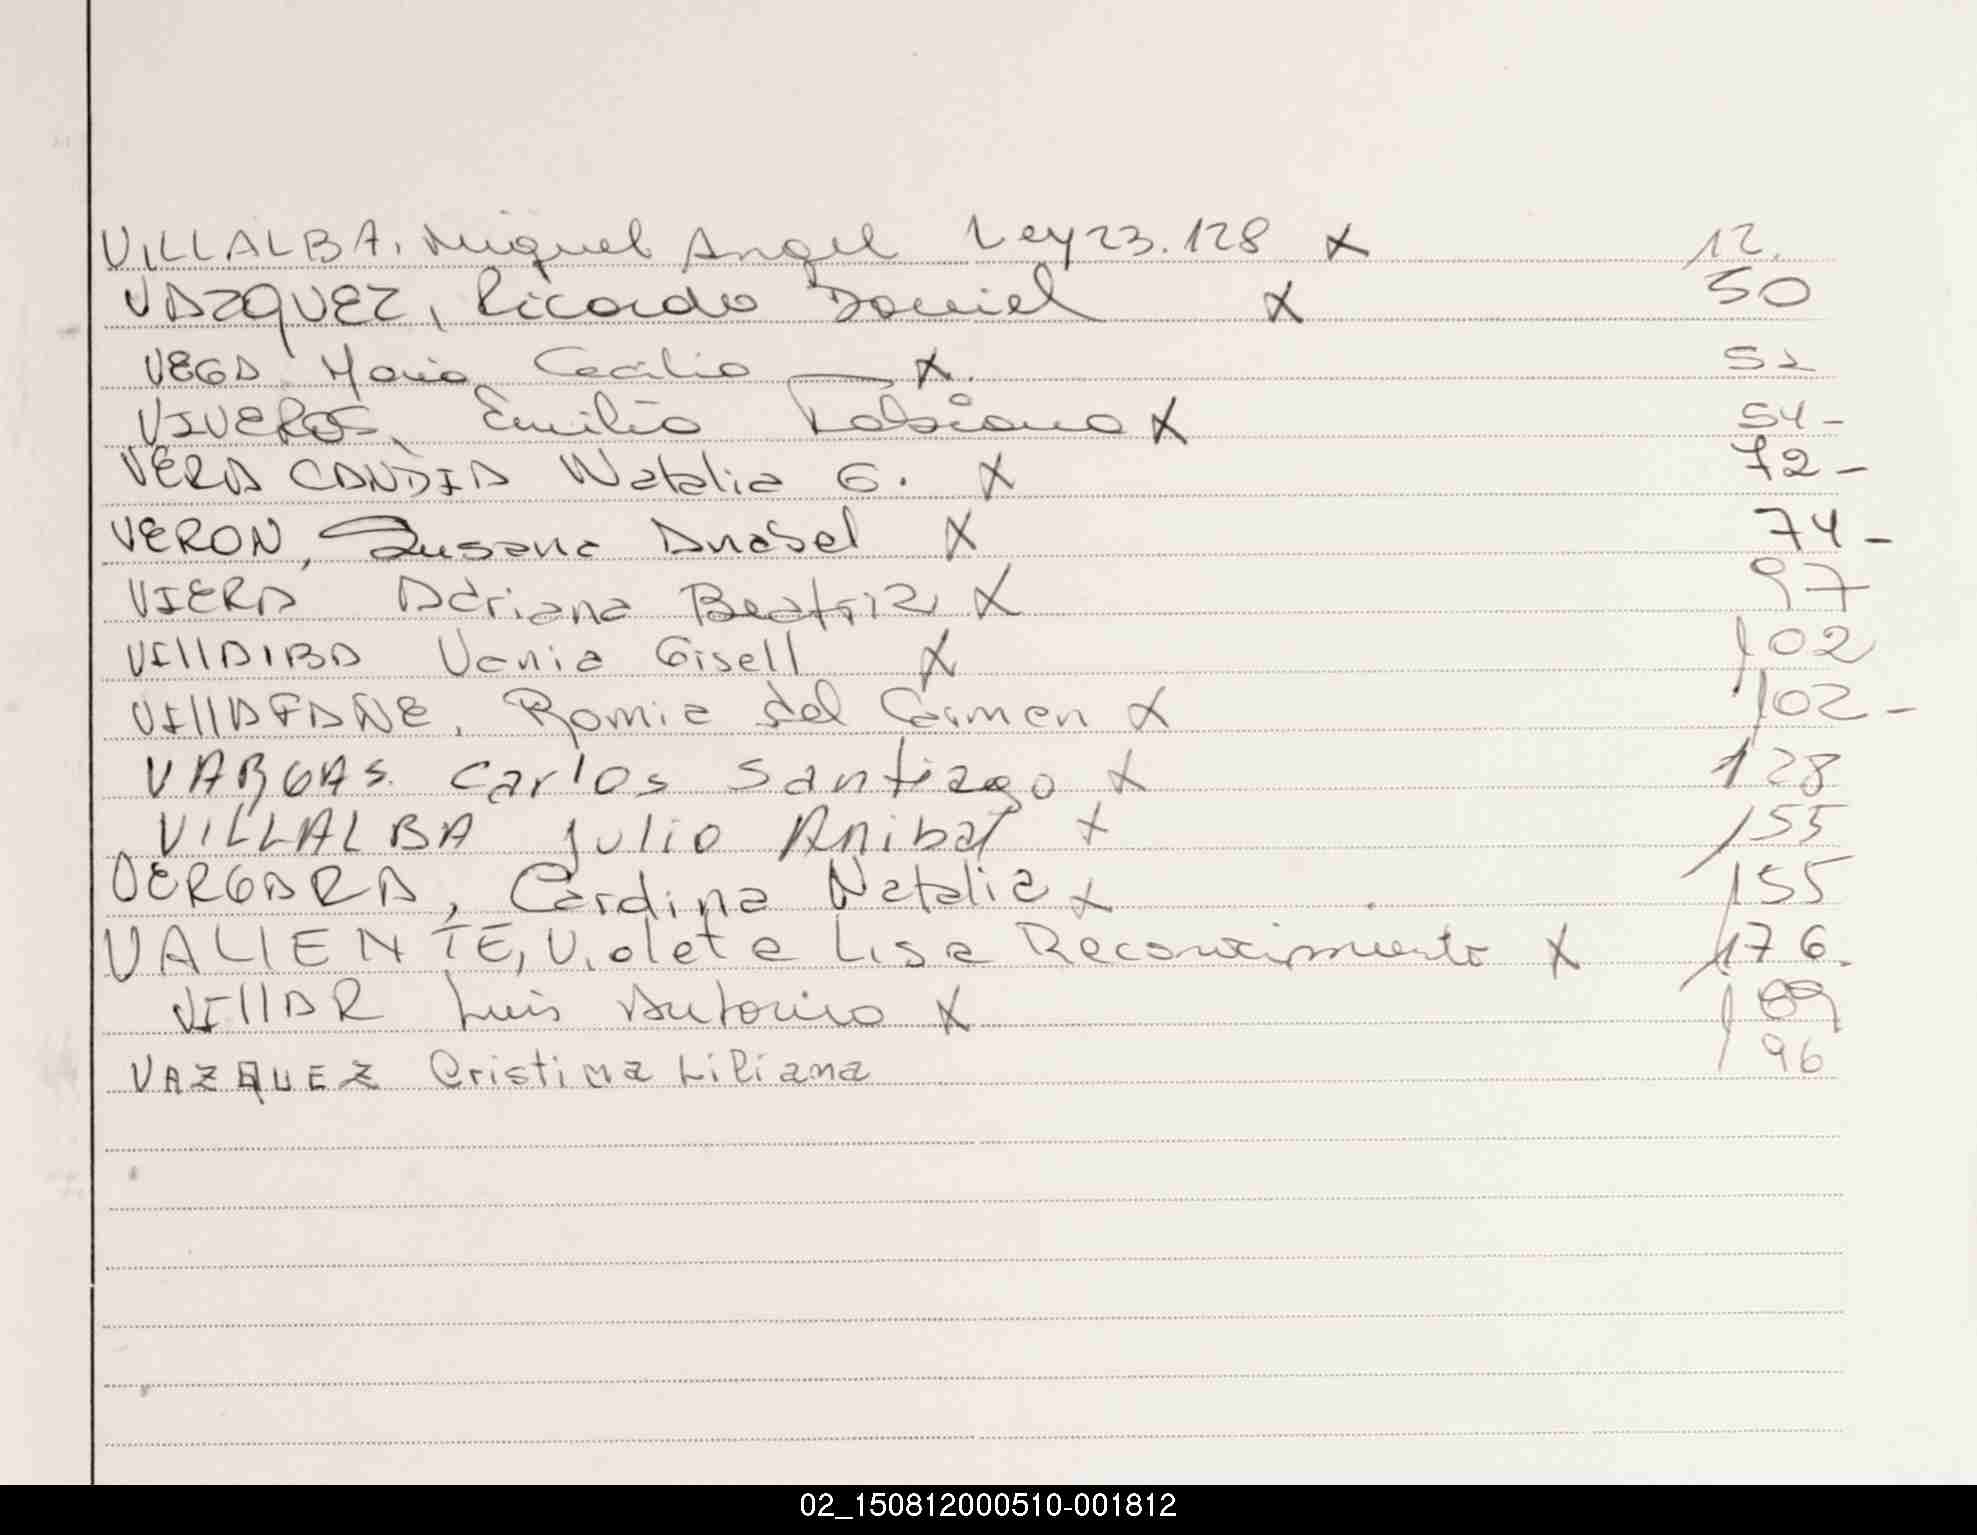 VILLALBA, Miguel Angel Ley 23.128 X 12.
VAZQUEZ, Ricardo Daniel X 50
VEGA Maria Cecilia X. 52
VIVEROS, Emilio Fabiano X 54-
VERA CANDIA Natalia G. X 72-
VERON, Susana Anabel X 74-
VIERA Adriana Beatriz X 97
VIllAlBA Vania Gisell X 102
VIllAFAÑE, Romia del Carmen X 102-
VARGAS. Carlos Santiago X 128
VILLALBA Julio Anibal X 155
VERGARA, Natalia X 155
VALIENTE, Violeta Lisa Reconocimiento X 176.
VIllAR Luis Antonio X 189
VAZQUEZ Cristina Liliana 196
02_150812000510-001812